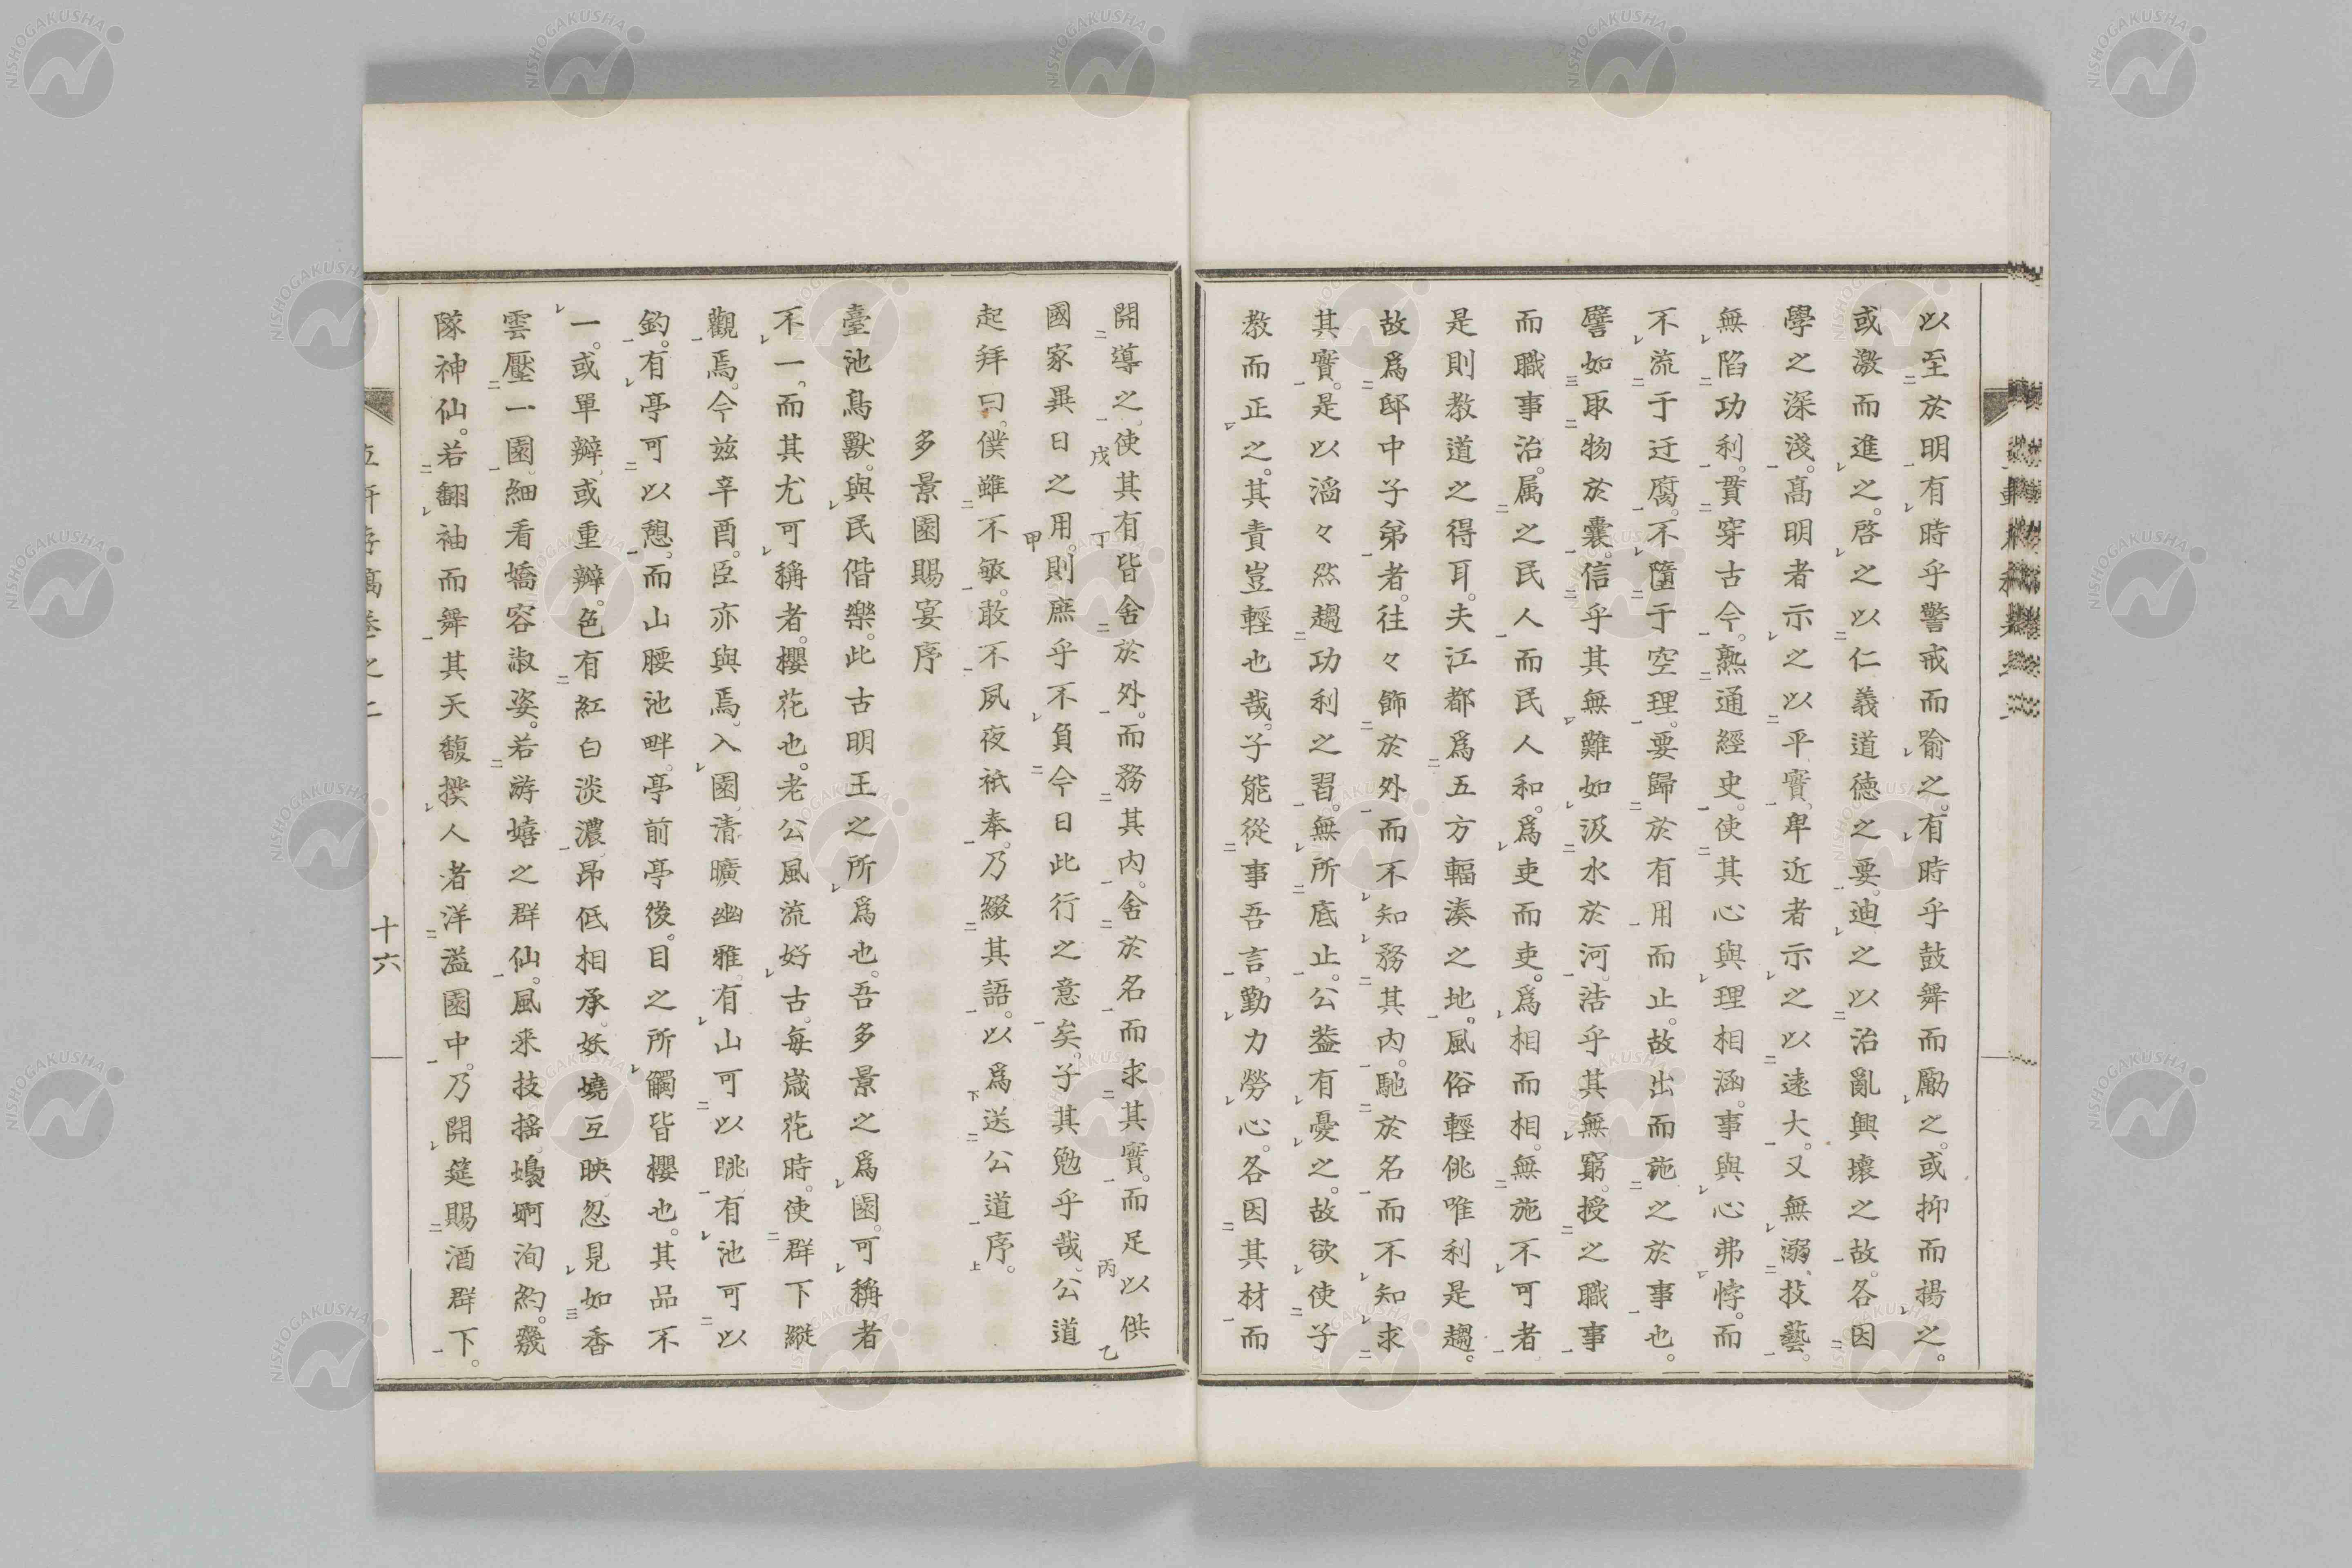 以至於明有時乎警戒而喻之。有時乎鼓舞而勵之。或抑而揚之。
或激而進之。啓之以仁義道德之要。迪之以治亂興壞之故。各因
學之深淺。高明者示之以平實、卑近者示之以遠大。又無溺技藝。
無陷功利。貫穿古今。熟通經史。使其心與理相涵。事與心弗悖。而
不流于迂腐。不墮于空理。要歸於有用而止。故出而施之於事也。
譬如取物於囊。信乎其無難如汲水於河。浩乎其無窮。授之職事
而職事治。属之民人而民人和。爲吏而吏。爲相而相。無施不可者
是則教道之得耳。夫江都爲五方輻湊之地。風俗輕佻唯利是趨。
故爲邸中子弟者。往々飾於外而不知務其内。馳於名而不知求
其實。是以滔々然趨功利之習。無所底止。公蓋有憂之。故欲使子
教而正之。其責豈輕也哉。子能從事吾言、勤力勞心。各因其材而
開導之、使其有皆舍於外。而務其内。舍於名而求其實。而足以供
國家異日之用。則庶乎不負今日此行之意矣。子其勉乎哉。公道
起拜曰。僕雖不敏。敢不夙夜祇奉。乃綴其語。以爲送公道序。
多景園賜宴序
臺池鳥獸。與民偕樂。此古明王之所爲也。吾多景之爲園。可稱者
不一。而其尤可稱者。櫻花也。老公風流好古。每歳花時。使群下縱
觀焉。今茲辛酉。臣亦與焉。入園清曠幽雅。有山可以眺、有池可以
釣。有亭可以憩、而山腰池畔。亭前亭後。目之所觸皆櫻也。其品不
一。或單瓣、或重瓣。色有紅白淡濃、昂低相承。妖嬈互映忽見如香
雲壓一園。細看嬌容淑姿。若游嬉之群仙。風來技搖。嫋婀洵約。幾
隊神仙。若翻袖而舞其天馥撲人者洋溢園中。乃開筵賜酒群下。
十六